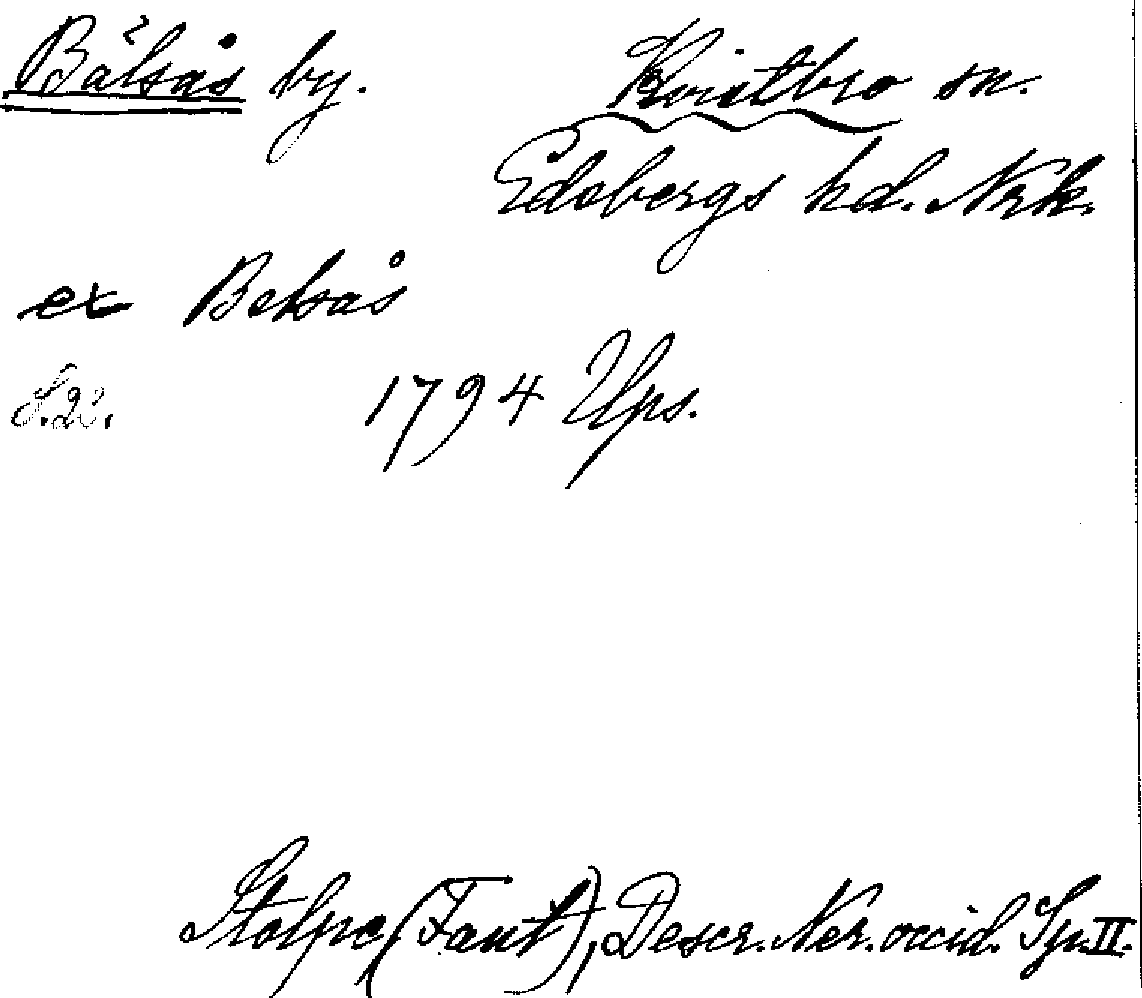 Bälsås by. Kvistbro sn.
Edsbergs hd. Nrk.
ex Belsås
S. 20. 1794 Ups.
Stolpe (Fant), Descr. Ner. occid. Sp. II.